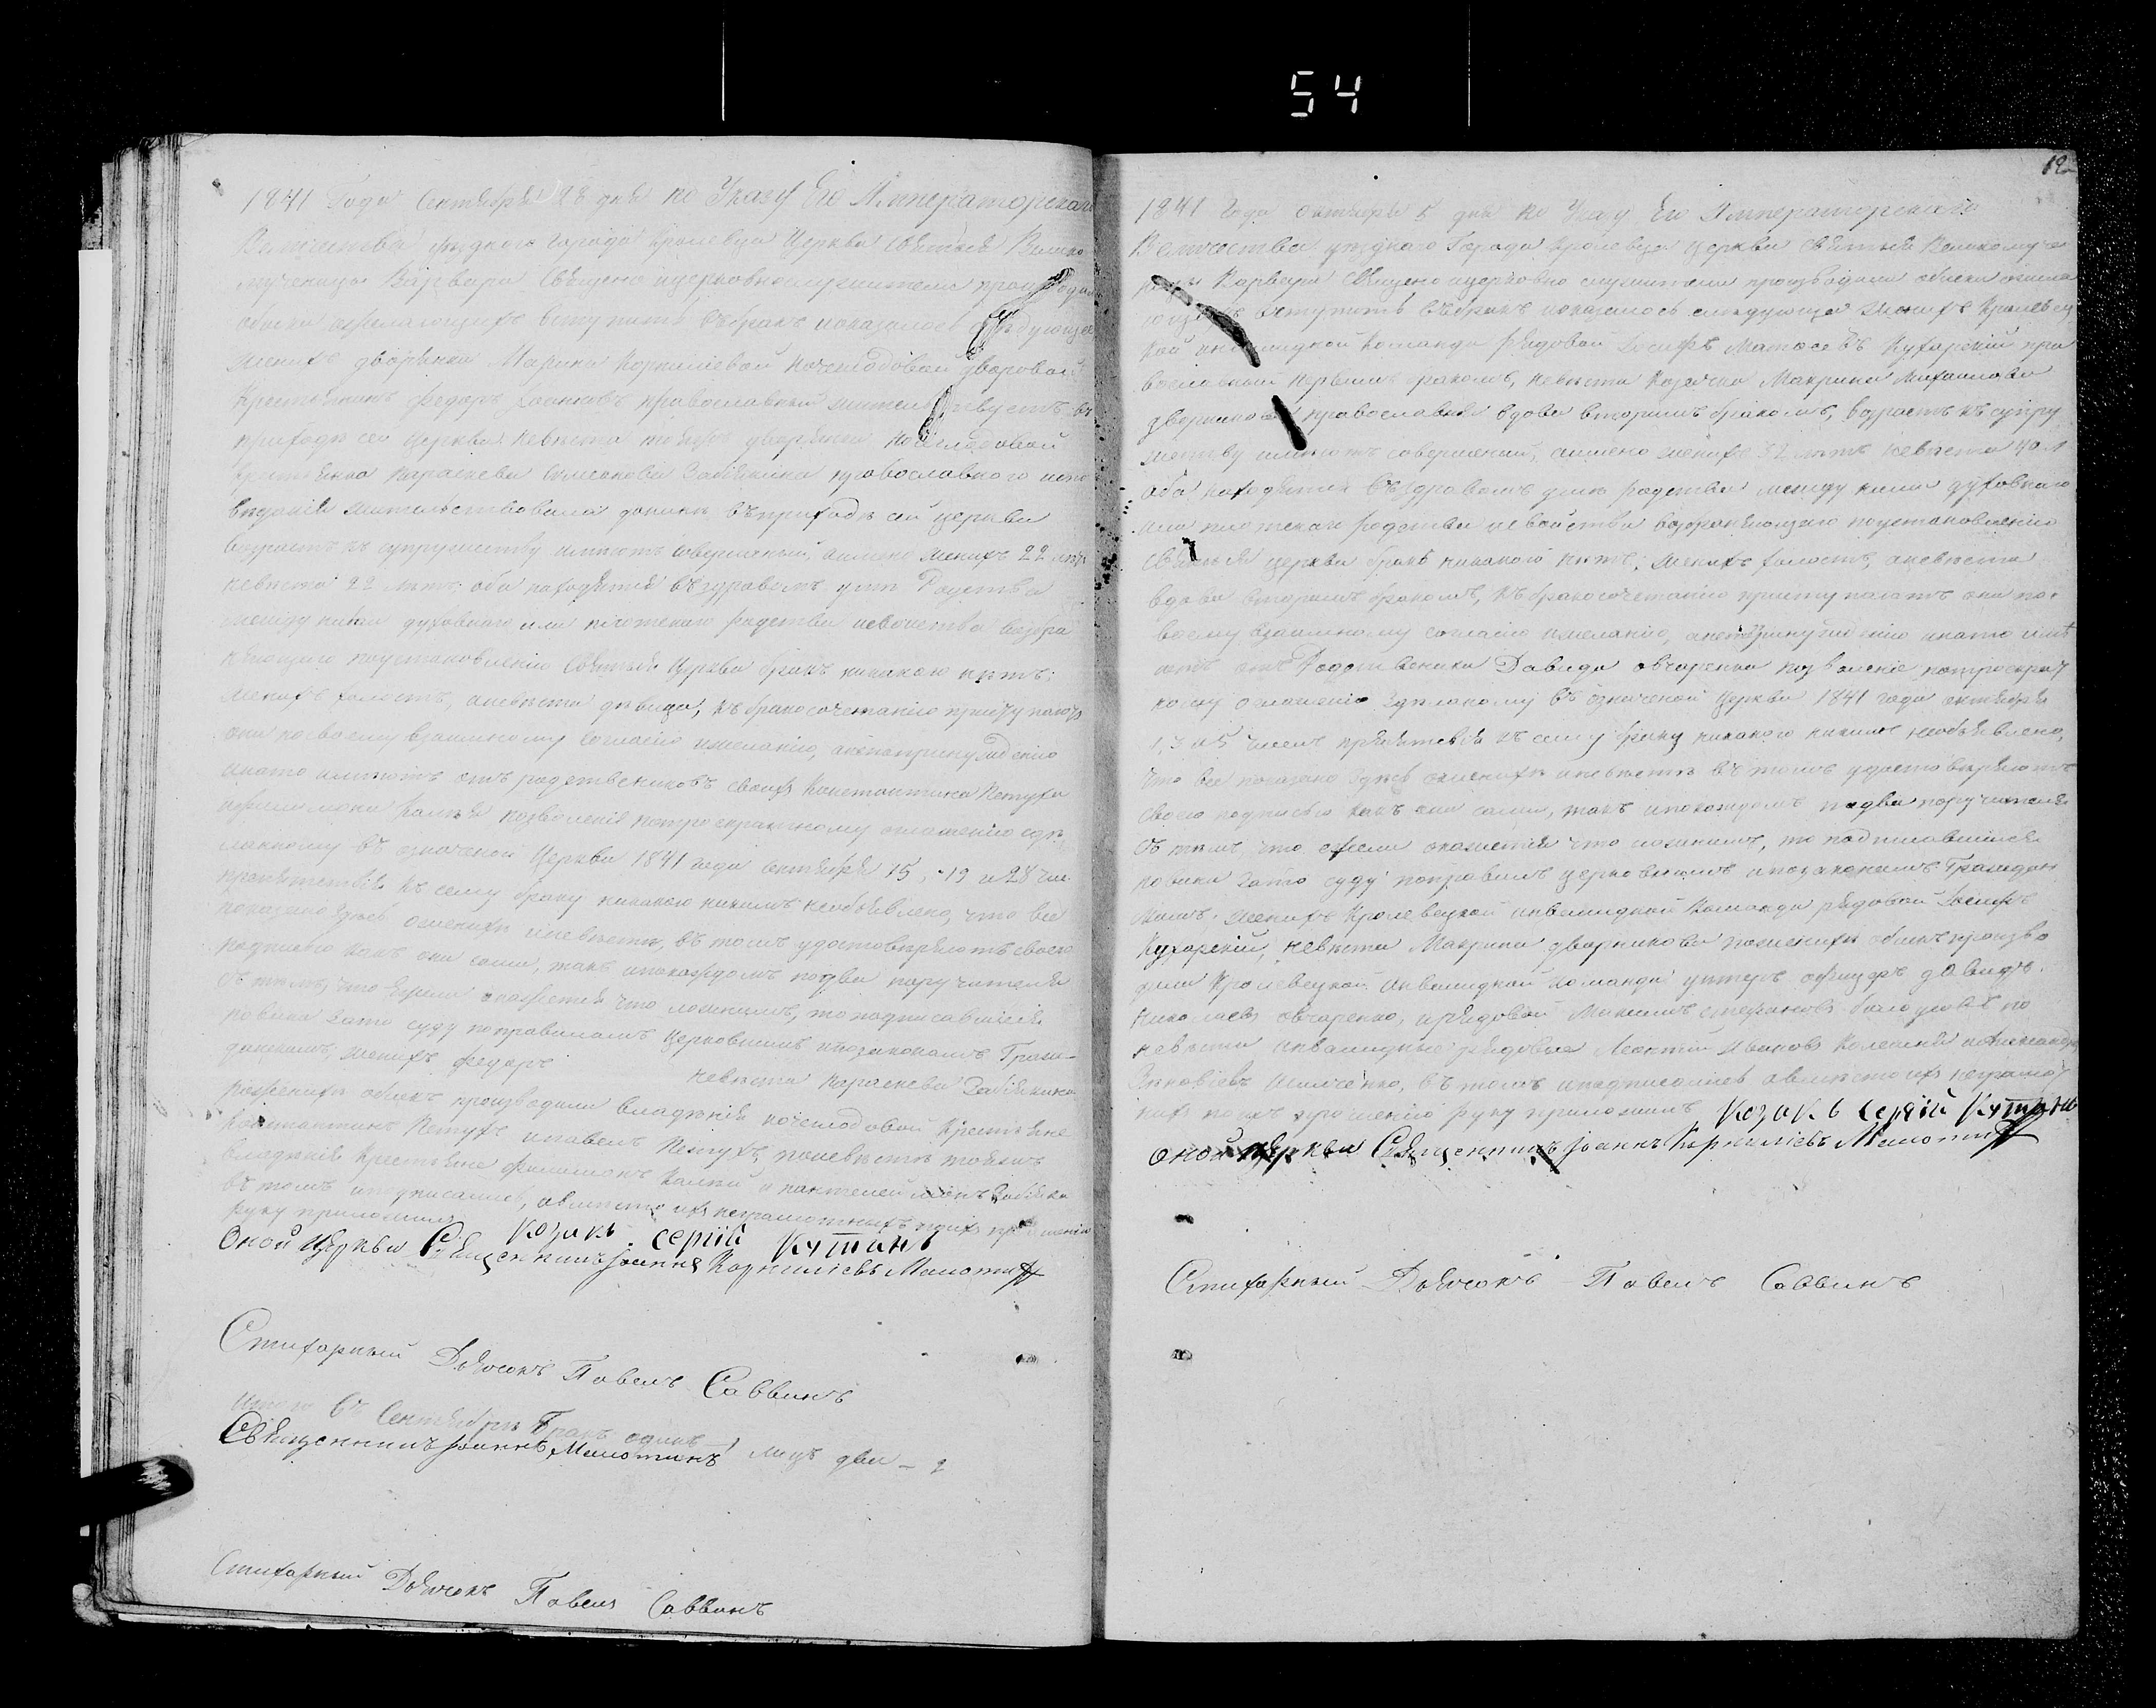 54
1841 Года Сентября 28 дня по Указу Его Императорскаго
Величества уезднаго города Кролевца Церкви Святыя Велико
мученицы Варвари Священо ицерковнослужители производили
обыски желающихъ вступить въбракъ показалось следующее
женихъ дворянки Марины Корнилiевой дворовый
Крестьянинъ Федоръ православный жителствуетъ въ
приходѣ сей церкви невѣста тояжъ дворянки
Крестьянка Параскева православного испо
вѣданiя жителствовала донынѣ въприходѣ сей церкви
возрастъ къ супружеству имѣютъ совершенный, аимено женихъ 22 лѣтъ
невѣста 22 лѣтъ; оба находятся въздравомъ умѣ Родства
между ними духовнаго или плотскаго родства исвойства возбра
няющаго поустановленiю Святыя Церкви бракъ никакого нѣтъ;
женихъ холостъ, аневѣста дѣвица, къбракосочетанiю приступаютъ
они посвоему взаимному согласiю ижеланiю, анепопринужденiю
инато имѣютъ отъ родствениковъ своихъ Константина Петуха
позволенiя потроекратному оглашенiю сдѣ
ланному въ означеной Церкви 1841 года сентября 15, 19 и 28 чис
препятствiя къ сему браку никакого никимъ необъявлено, что все
показано здѣсь ожениху иневѣсте, въ томъ удостовѣряютъ своею
подписью какъ они сами, такъ ипокаждомъ подва поручителя
съ тѣмъ, что ежели окажется что ложнымъ, то подписавшiяся
повины зато суду поправиламъ Церковнымъ ипозаконамъ Граж-
данскимъ, женихъ Федоръ невѣста Параскева
поженихѣ обыскъ производили владѣнiя Крестьяне
Константинъ Петухъ ипавелъ Петухъ, поневѣстѣ тояжъ
владѣнiя Крестьяне Филимонъ и пантелеймонъ
въ томъ иподписались, авместо ихъ неграмотныхъ поихъ прошенiю
руку приложилъ Козакъ. сергiй Кутанъ
Оной Церкви Священникъ Iоаннъ Корнилiевъ Малютинъ
Стихарный Дьячокъ Павелъ Саввинъ
Итого въ Сентябрѣ Бракъ одинъ 1 лицъ два – 2
Священникъ Iоаннъ Малютинъ
Стихарный Дьячокъ Павелъ Саввинъ
12
1841 года октября 5 дня по Указу Его Императорскаго
Величества уезднаго Города Кролевца церкви Святыя Великомуче
ницы Варвари Священо ицерковно служители производили обыски желаю
ющихъ вступить въбракъ показалось следующее женихъ Кролевец
кой инвалидной Команды рядовой Iосифъ Матвеевъ Кухарскiй пра
вославный первымъ бракомъ, невѣста Козачка Маврина Михаилова
дворникова православная вдова вторымъ бракомъ, возрастъ къ супру
жеству имѣютъ совершений, аимено женихъ 32 лѣтъ невѣста 40 л
оба находятся въздравомъ умѣ родства между ними духовнаго
или плотскаго родства исвойства возбраняющаго поустановленiю
святыя церкви бракъ никакого нѣтъ, женихъ холостъ, аневѣста
вдова вторымъ бракомъ, къбракосочетанiю приступаютъ они по
воему взаимному согласiю ижеланiю, анепопринужденiю инато имѣ
ютъ отъ Родственика Давида овчаренка позволенiе потроекрат
ному оглашенiю зделаному въ означеной Церкви 1841 года октября
1, 3 и 5 чиселъ препятствiя къ сему браку никакого никимъ необъявлено,
что все показано здѣсь ожениху иневѣсте въ томъ удостовѣряютъ
своею подписью какъ они сами, такъ ипокаждомъ подва поручителя
съ тѣмъ что ежели окажется что ложнымъ, то подписавшiяся
повины зато суду поправилъ церковнымъ ипозаконамъ Граждан
скимъ. женихъ Кролевецкой инвалидной Команды рядовой Iосифъ
Кухарскiй, невѣста Маврина дворникова поженихѣ обыскъ произво
дили Кролевецкой Инвалидной Команды унтеръ офицеръ Давидъ
Николаевъ овчаренко, ирядовой Максимъ стефановъ по
невѣсты инвалидные рядовые Леонтiй Ивановъ иАлександръ
Зѣновiевъ въ томъ иподписались авместо ихъ неграмот
ныхъ поихъ прошенiю руку приложилъ Козакъ Сергiй Кутанъ
Оной церкви Священникъ Iоаннъ Корнилiевъ Малютинъ
Стихарный Дьячокъ Павелъ Саввинъ